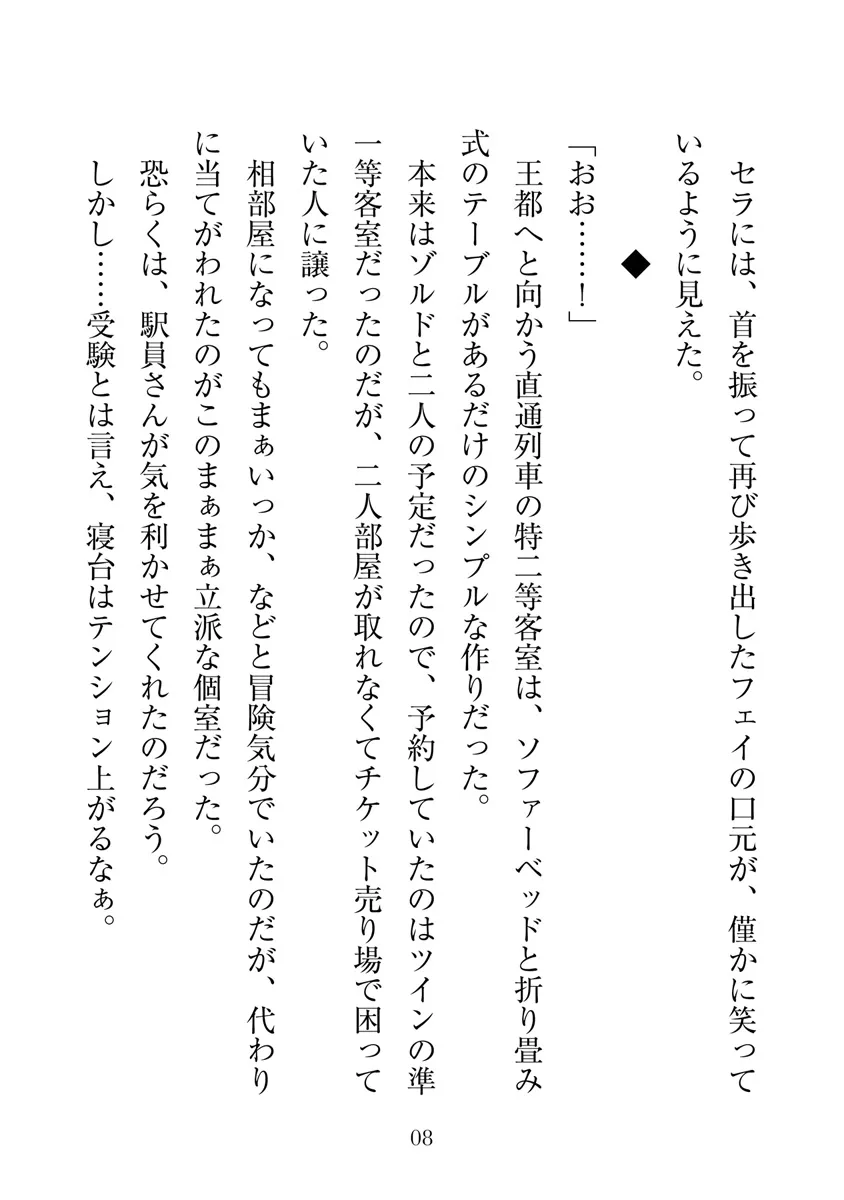 セラには、首を振って再び歩き出したフェイの口元が、僅かに笑って
いるように見えた。
◆
「おお……！」
王都へと向かう直通列車の特二等客室は、ソファーベッドと折り畳み
式のテーブルがあるだけのシンプルな作りだった。
本来はゾルドと二人の予定だったので、予約していたのはツインの準
一等客室だったのだが、二人部屋が取れなくてチケット売り場で困って
いた人に譲った。
相部屋になってもまぁいっか、などと冒険気分でいたのだが、代わり
に当てがわれたのがこのまぁまぁ立派な個室だった。
恐らくは、駅員さんが気を利かせてくれたのだろう。
しかし……受験とは言え、寝台はテンション上がるなぁ。
08